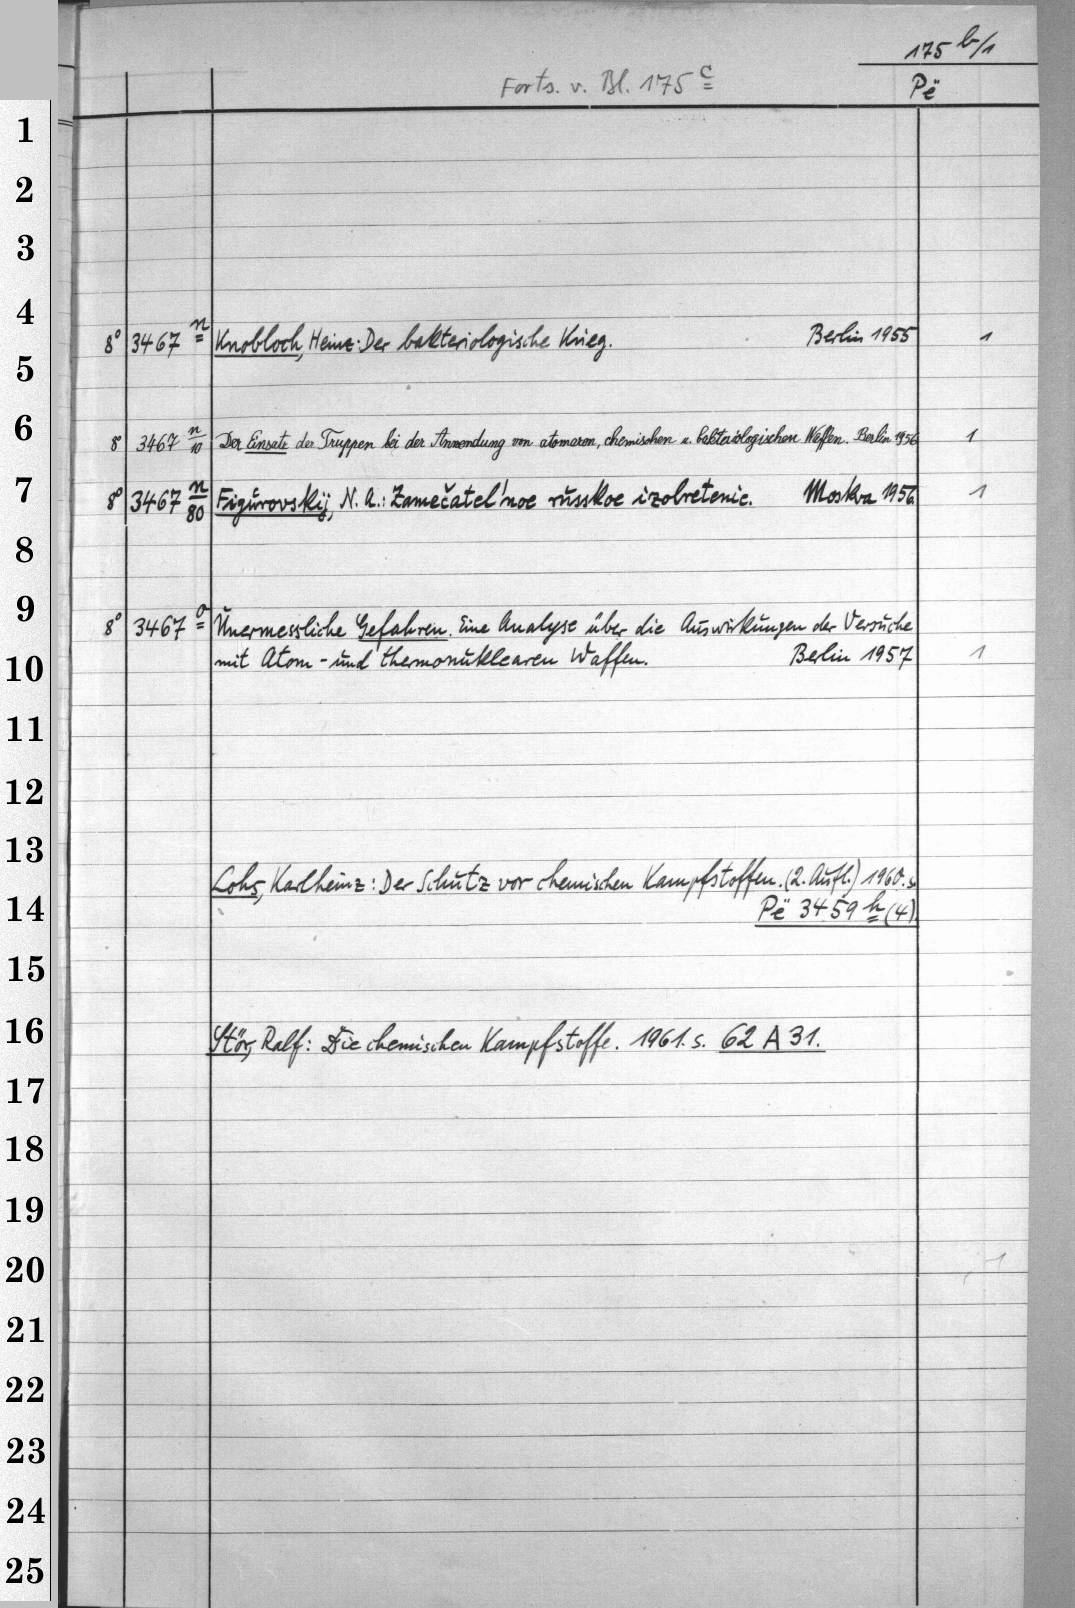 175 b/1
Forts. v. Bl. 175 c
Pë
1
2
3
4
8° 3467 n Knobloch, Heinz: Der bakteriologische Krieg. Berlin 1955 1
5
6
8° 3467 n/10 Der Einsatz der Truppen bei der Anwendung von atomaren, chemischen u. bakteriologischen Waffen. Berlin 1956 1
7
8° 3467 n/80 Figurovskij, N. A.: Zamečatel'noe russkoe izobretenie. Moskva 1956. 1
8
9
8° 3467 o Unermessliche Gefahren. Eine Analyse über die Auswirkungen der Versuche
10
mit Atom- und thermonuklearen Waffen. Berlin 1957 1
11
12
13
Lohs, Karlheinz: Der Schutz vor chemischen Kampfstoffen. (2. Aufl.) 1960. s.
14
Pë 3459 h (4).
15
16
Stör, Ralf: Die chemischen Kampfstoffe. 1961. s. 62 A 31.
17
18
19
20
1
21
22
23
24
25